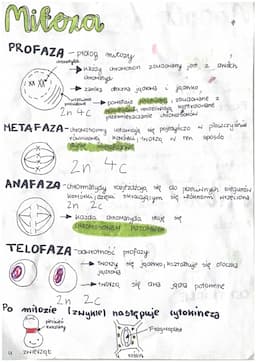 Mitoza
PROFAZA - prolog mitozy
chromatyda
każdy chromosom zbudowany jest z dwóch
chromatyd
zanika otoczka jądrowa i jąderko
powstaje zbudowane z
2n 4c
METAFAZA - chromosomy ustawiają się pojedynczo w płaszczyźnie
równikowej komórki tworząc w ten sposób
2n 4c
ANAFAZA - chromatydy rozchodzą się do przeciwnych biegunów
komórki dzięki skracającym się włóknom wrzeciona
2n 2c
każda chromatyda staje się
chromosomem potomnym
TELOFAZA - odwrotność profazy
tworzy się jąderko, kształtuje się otoczka
jądrowa
tworzą się dwa jądra potomne
2n 2c
Po mitozie (zwykle) następuje cytokineza
pierścień
kurczliwy
Fragmoplast
u zwierząt